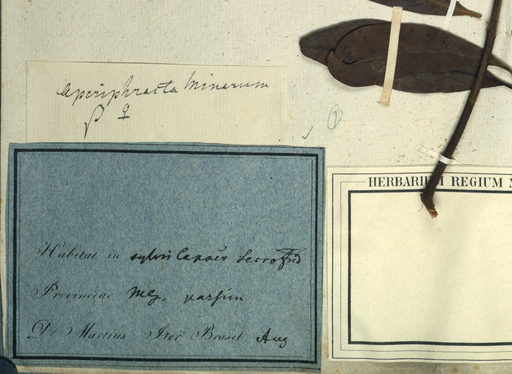 Aperiphracta Minarum
β ♀
HERBARIUM REGIUM
Habitat in sylvis Capoës Serro Frio
Provinciae Mg. passim
Dr. Martius Iter Brasil. Aug